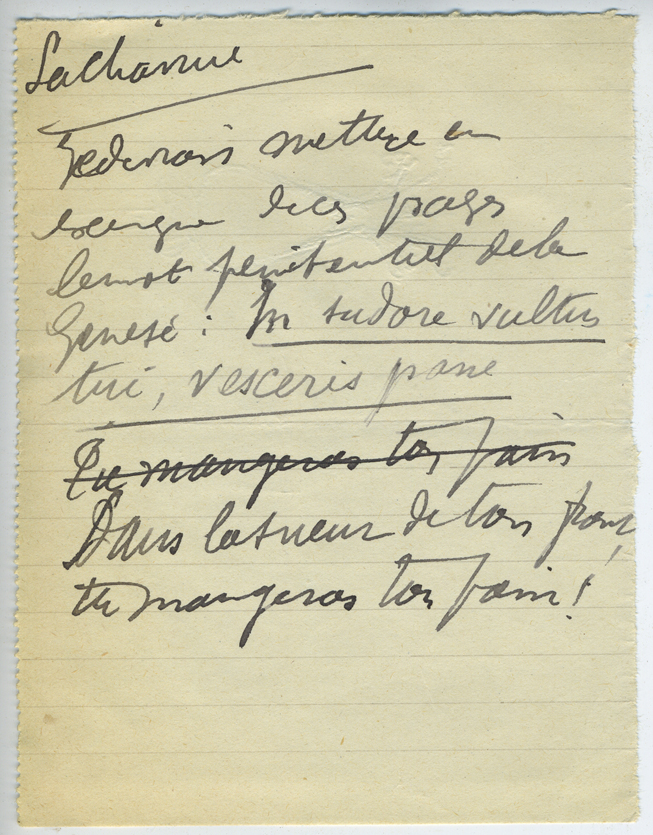 La Charrue
Je devrais mettre en
exergue de ces pages
le mot pénitentiel de la
Genèse : In sudore vultus
tui, vesceris pane
Tu mangeras ton pain
Dans la sueur de ton front,
tu mangeras ton pain !